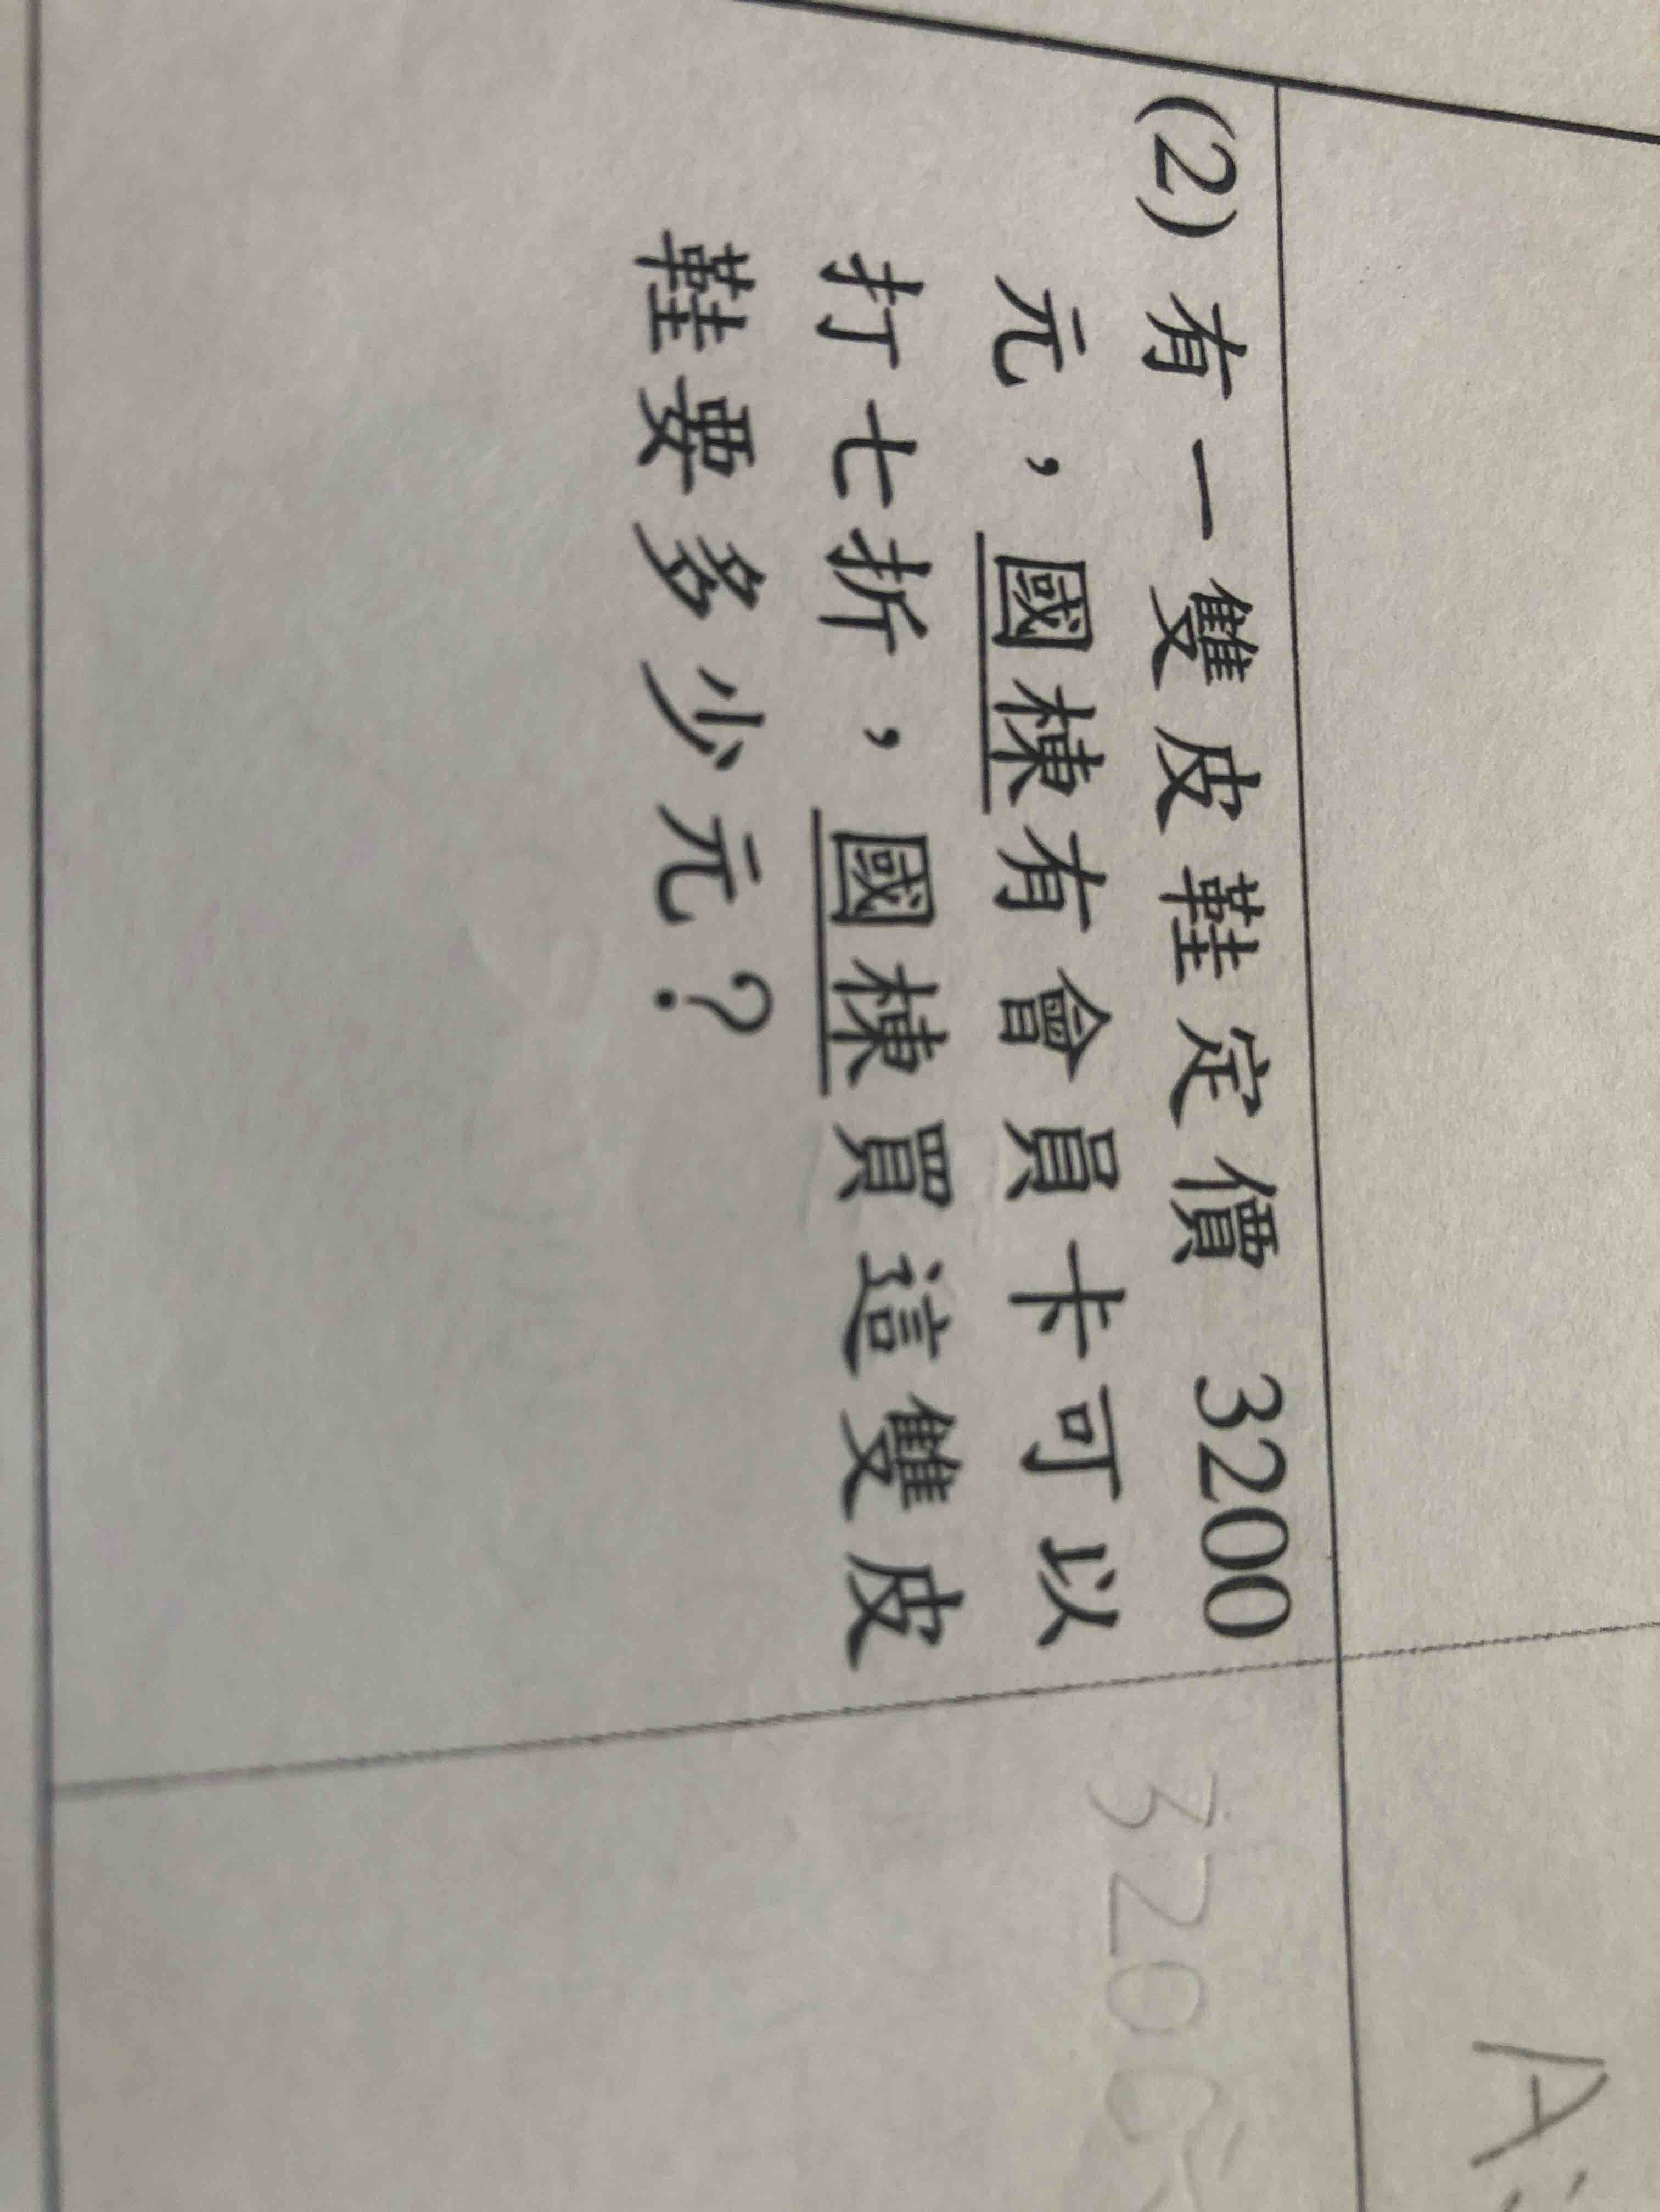 (2) 有一雙皮鞋定價 3200
元，國棟有會員卡可以
打七折，國棟買這雙皮
鞋要多少元？
3200
A: